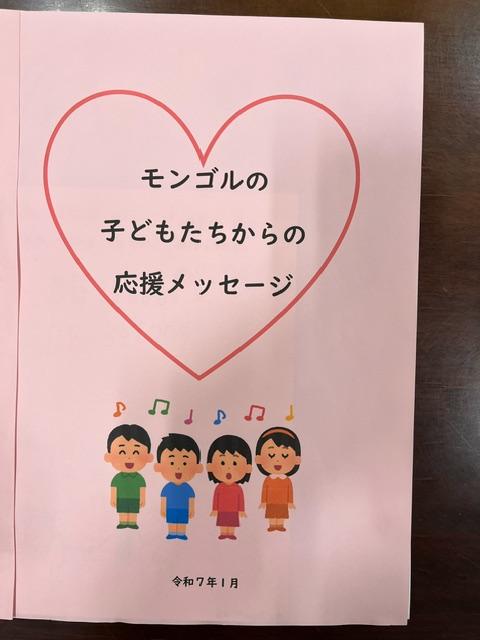 モンゴルの
子どもたちからの
応援メッセージ
令和7年1月